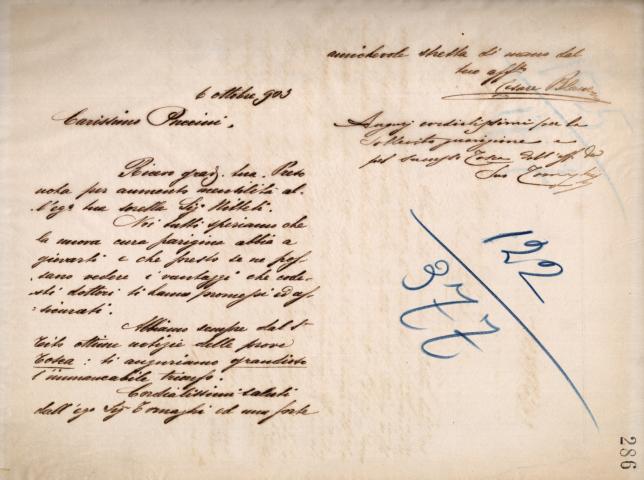 6 ottobre 903
Carissimo Puccini,
Ricevo graz. tua. Preso
nota per aumento mensilità al
l'eg. tua sorella Sig. Nitteti.
Noi tutti speriamo che
la nuova cura parigina abbia a
giovarti e che presto se ne pos-
sano vedere i vantaggi che code-
sti dottori ti hanno promessi ed as-
sicurati.
Abbiamo sempre dal Sr
Tito ottime notizie delle prove
Tosca: ti auguriamo grandioso
l'immancabile trionfo.
Cordialissimi saluti
dall'eg. Sig. Tornaghi ed una forte
amichevole stretta di mano dal
tuo aff.
Cesare Blanc
Auguri cordialissimi per la
sollecita guarigione e
pel successo Tosca dall'aff.
Suo Tornaghi
122
377
286